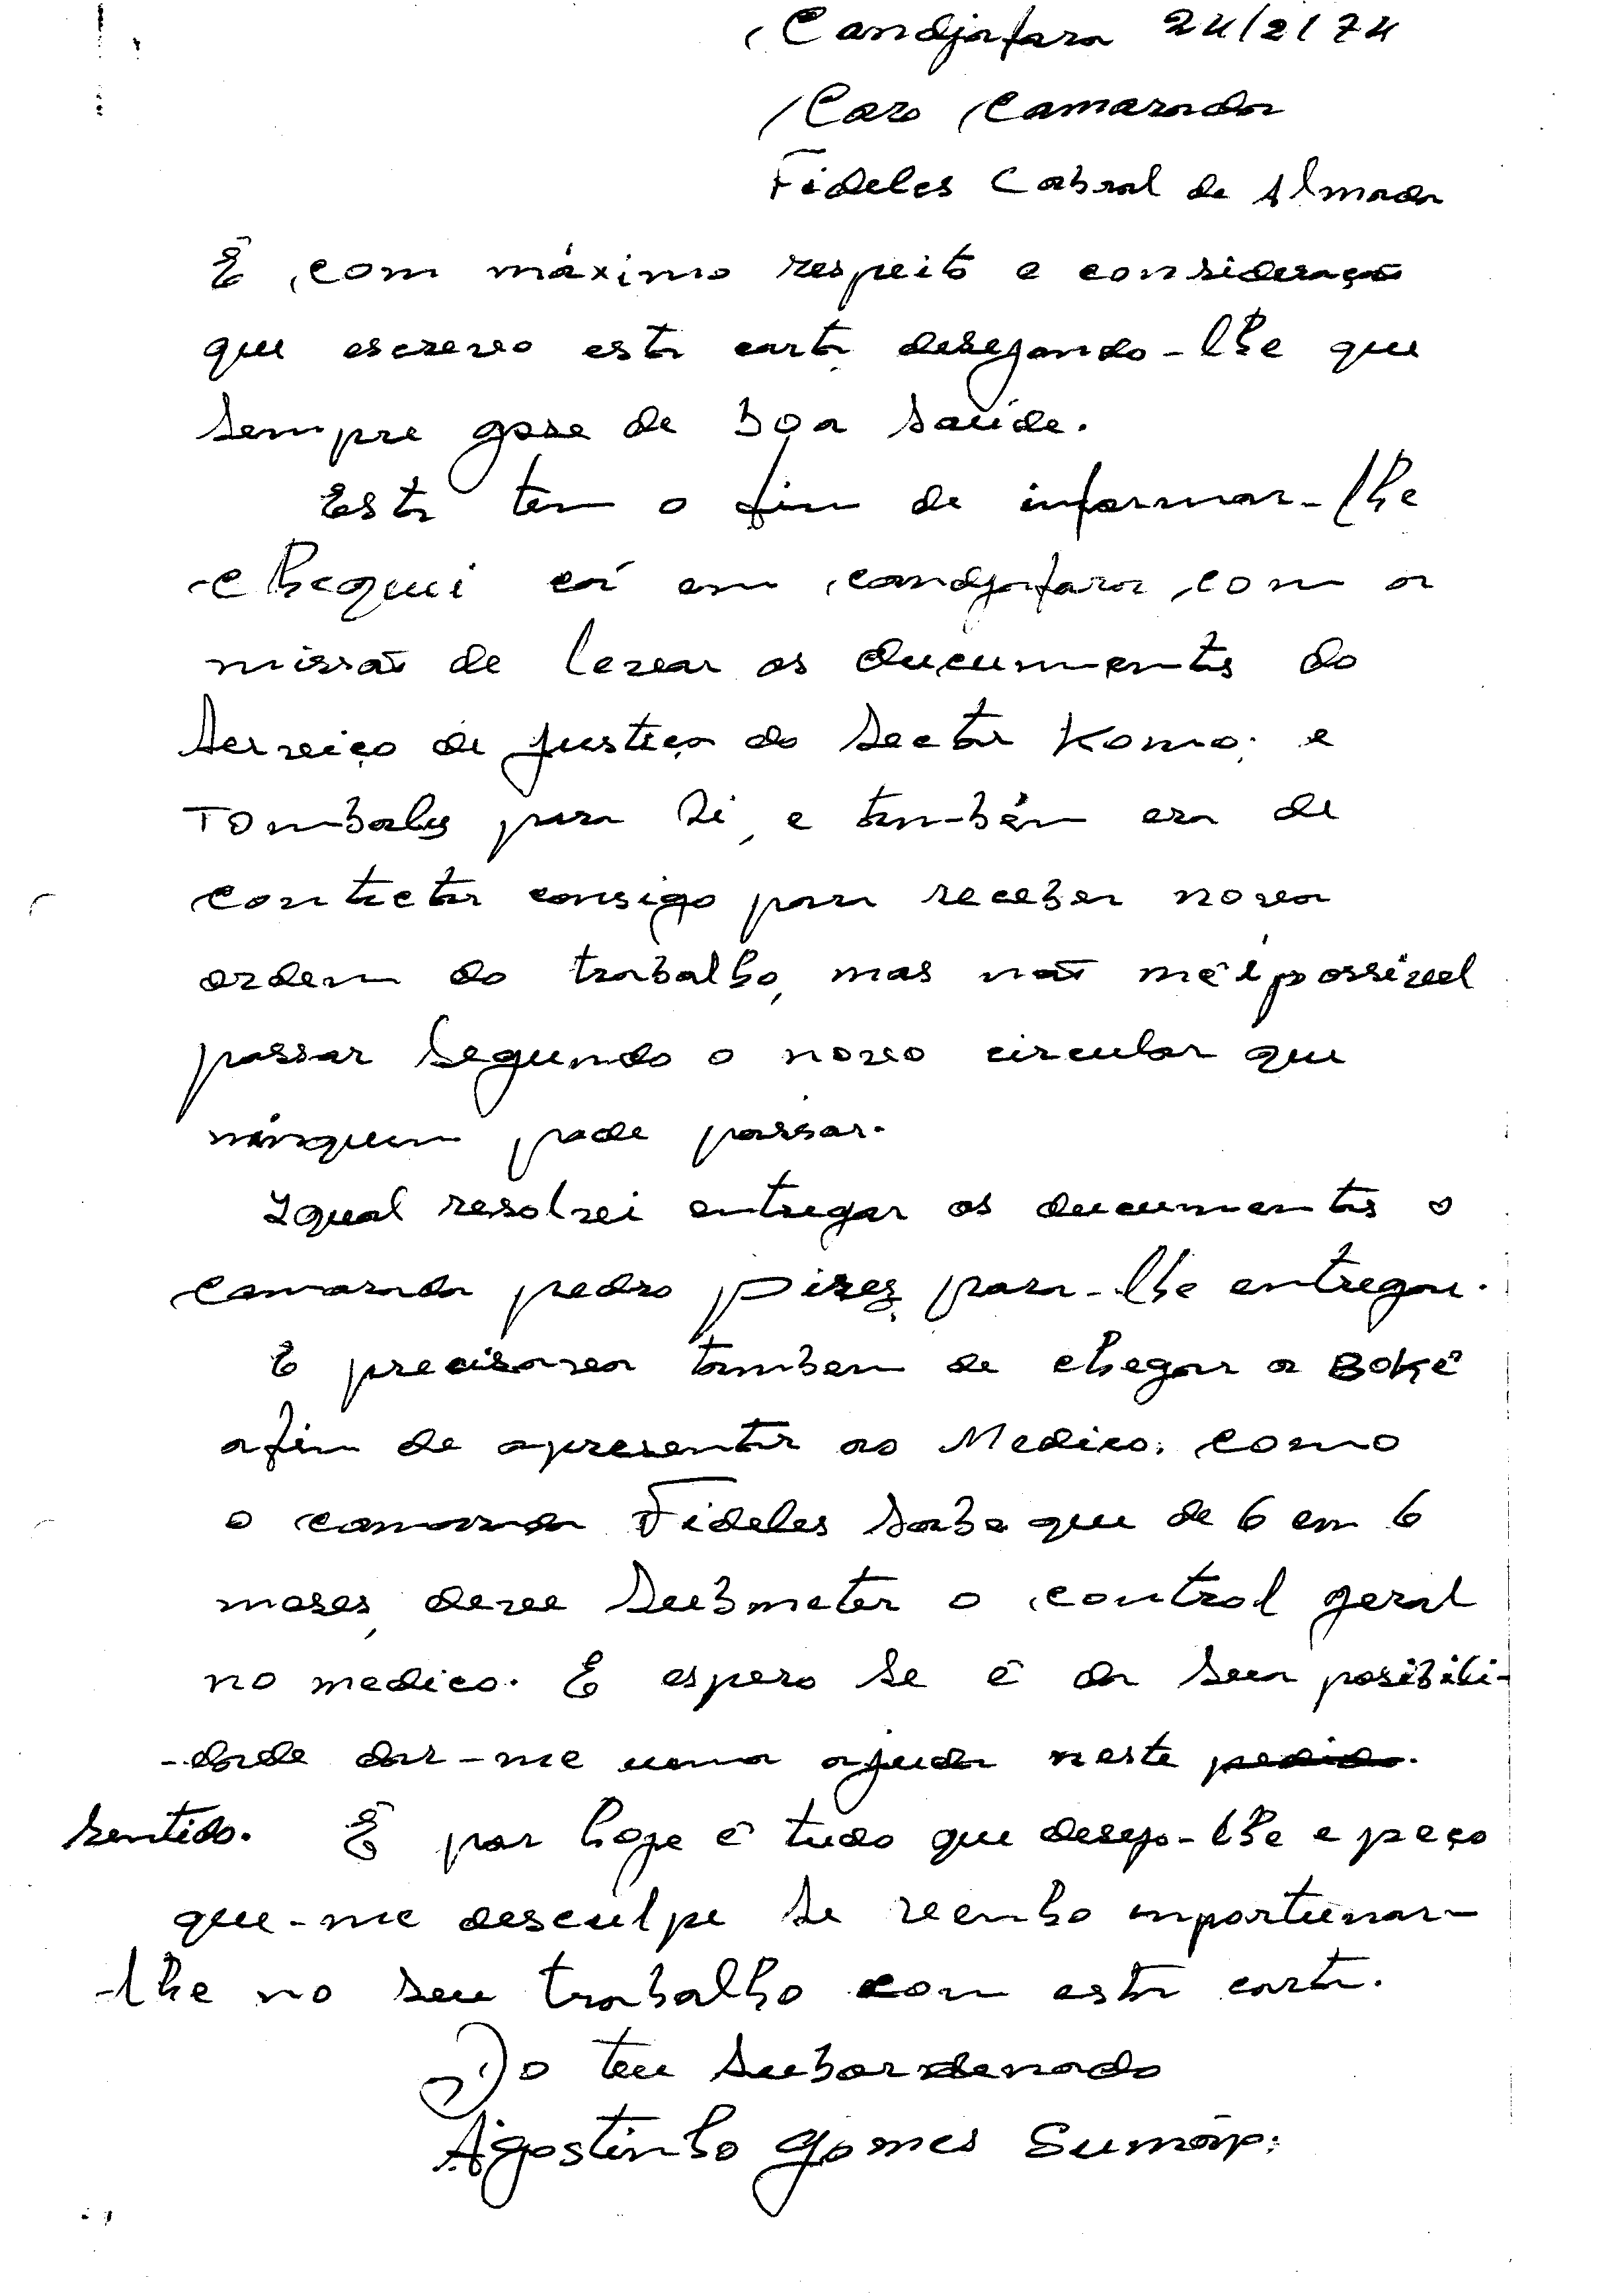 Candjafara 24/2/74
Caro Camarada
Fideles Cabral de Almada
É com máximo respeito e consideração
que escrevo esta carta desejando-lhe que
sempre gose de boa saúde.
Esta tem o fim de informar-lhe
chequei cá em candjafara com a
missão de levar os ducumentos do
Serviço de justiça do Sector Komo; e
Tombaly para Si, e também era de
contactar consigo para receber nova
ordem do trabalho, mas não mé possível
passar segundo o novo circular que
ninguem pode passar.
Igual resolvei entregar os ducumentos o
camarada pedro pires, para-lhe entregar.
E precisava tambem de chegar a BOKé
afim de apresentar ao Medico; como
o camarada Fideles sabe que de 6 em 6
meses, deve submeter o control geral
no medico. E espero se é da sua posibili-
-dade dar-me uma ajuda neste pedido.
sentido. E por hoje é tudo que desejo-lhe e peço
que-me desculpe se venho inportunar-
-lhe no seu trabalho com esta carta.
Do teu subordenado
Agostinho Gomes Sumão;